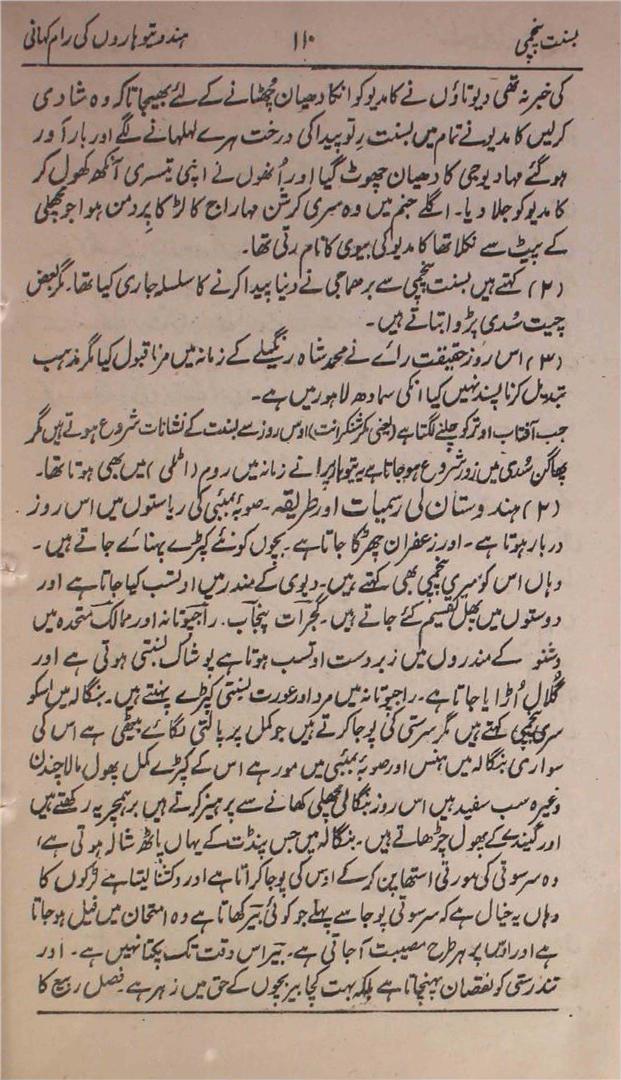 بسنت پنچمی ۱۱۰ ہندو تیوہاروں کی رام کہانی
کی خبر نہ تھی دیوتاؤں نے کامدیو کو انکا دھیان چھٹانے کے لئے بھیجا تاکہ وہ شادی
کرلیں کامدیو نے تمام میں بسنت رتو پیدا کی درخت ہرے لہلہانے لگے اور بار آور
ہوگئے مہادیوجی کا دھیان چھوٹ گیا اور اُنھوں نے اپنی تیسری آنکھ کھول کر
کامدیو کو جلا دیا۔ اگلے جنم میں وہ سری کرشن مہاراج کا لڑکا پردمن ہوا جو مچھلی
کے پیٹ سے نکلا تھا کامدیو کی بیوی کا نام رتی تھا۔
(۲) کہتے ہیں بسنت پنچمی سے برھماجی نے دنیا پیدا کرنے کا سلسلہ جاری کیا تھا۔ مگر بعض
چیت سُدی پڑوا بتاتے ہیں۔
(۳) اس روز حقیقت رائے نے محمد شاہ رنگیلے کے زمانہ میں مرنا قبول کیا مگر مذہب
تبدیل کرنا پسند نہیں کیا انکی سمادھ لاہور میں ہے۔
جب آفتاب اوتر کو چلنے لگتا ہے (یعنی مکر شنکرانت) اوس روز سے بسنت کے نشانات شروع ہوتے ہیں مگر
پھاگن سُدی میں زور شروع ہو جاتا ہے یہ تیوہار پرانے زمانہ میں روم (اٹلی) میں بھی ہوتا تھا۔
(۲) ہندوستان کی رسمیات اور طریقہ۔ صوبۂ بمبئی کی ریاستوں میں اس روز
دربار ہوتا ہے۔ اور زعفران چھڑکا جاتا ہے بچوں کو نئے کپڑے پہنائے جاتے ہیں۔
وہاں اس کو سری پنچمی بھی کہتے ہیں۔ دیوی کے مندر میں اوتسب کیا جاتا ہے اور
دوستوں میں پھل تقسیم کئے جاتے ہیں۔ گجرات پنجاب۔ راجپوتانہ اور ممالک متحدہ میں
وشنو کے مندروں میں زبردست اوتسب ہوتا ہے پوشاک بسنتی ہوتی ہے اور
گلال اُڑایا جاتا ہے۔ راجپوتانہ میں مرد اور عورت بسنتی کپڑے پہنتے ہیں۔ بنگالہ میں اسکو
سری پنچمی کہتے ہیں مگر سرستی کی پوجا کرتے ہیں جو کمل پر پالتی لگائے بیٹھی ہے اس کی
سواری بنگالہ میں ہنس اور صوبۂ بمبئی میں مور ہے اس کے کپڑے کمل پھول مالا چندن
وغیرہ سب سفید ہیں اس روز بنگالی مچھلی کھانے سے پرہیز کرتے ہیں برہمچریہ رکھتے ہیں
اور گیندے کے پھول چڑھاتے ہیں۔ بنگالہ میں جس پنڈت کے یہاں پاٹھ شالہ ہوتی ہے،
وہ سرسوتی کی مورتی استھاپن کرکے اوس کی پوجا کراتا ہے اور دکشنا لیتا ہے لڑکوں کا
وہاں یہ خیال ہے کہ سرسوتی پوجا سے پہلے جو کوئی بیر کھاتا ہے وہ امتحان میں فیل ہو جاتا
ہے اور اوس پر ہر طرح مصیبت آجاتی ہے۔ بیر اس وقت تک پکتا نہیں ہے۔ اور
تندرستی کو نقصان پہنچاتا ہے بلکہ بہت کچا بیر بچوں کے حق میں زہر ہے۔ فصل ربیع کا